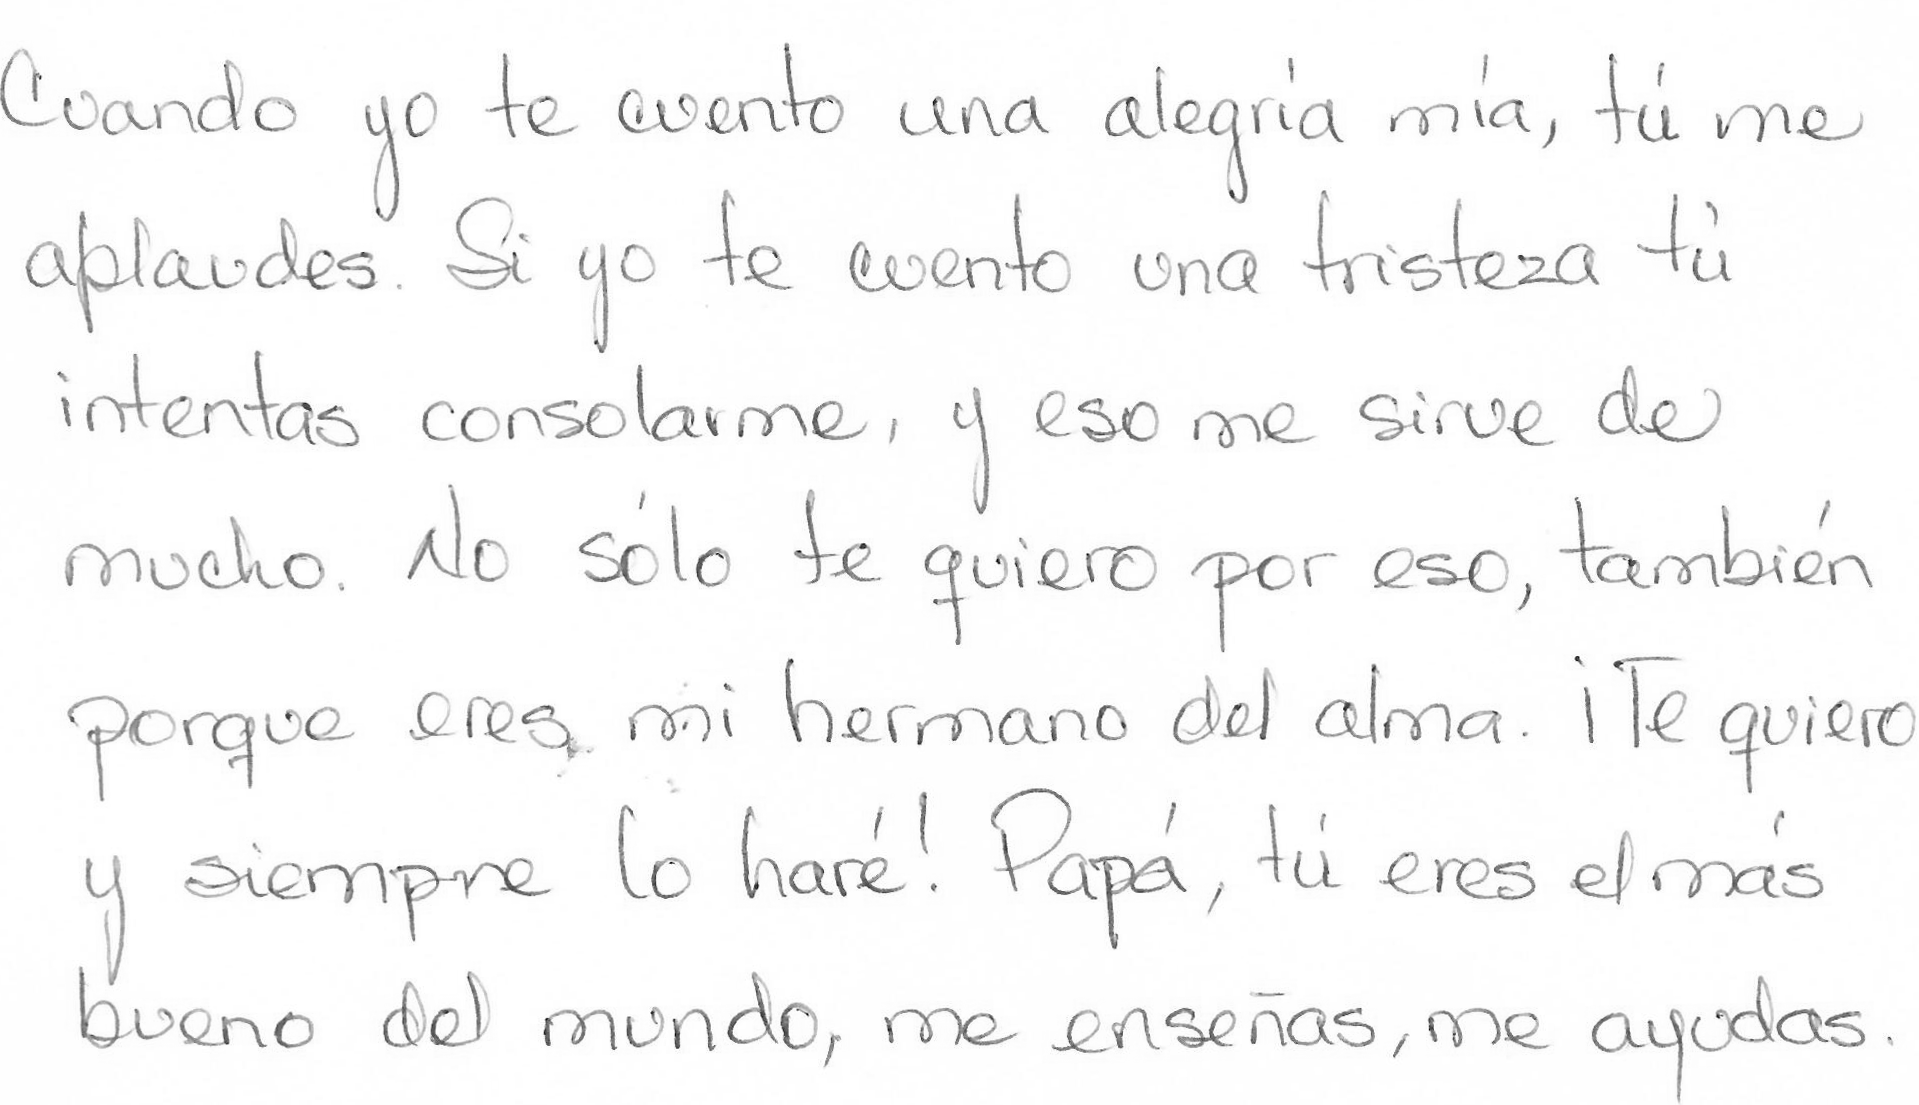 Cuando yo te cuento una alegría mía, tú me
aplaudes. Si yo te cuento una tristeza tú
intentas consolarme, y eso me sirve de
mucho. No sólo te quiero por eso, también
porque eres mi hermano del alma. ¡Te quiero
y siempre lo haré! Papá, tú eres el más
bueno del mundo, me enseñas, me ayudas.